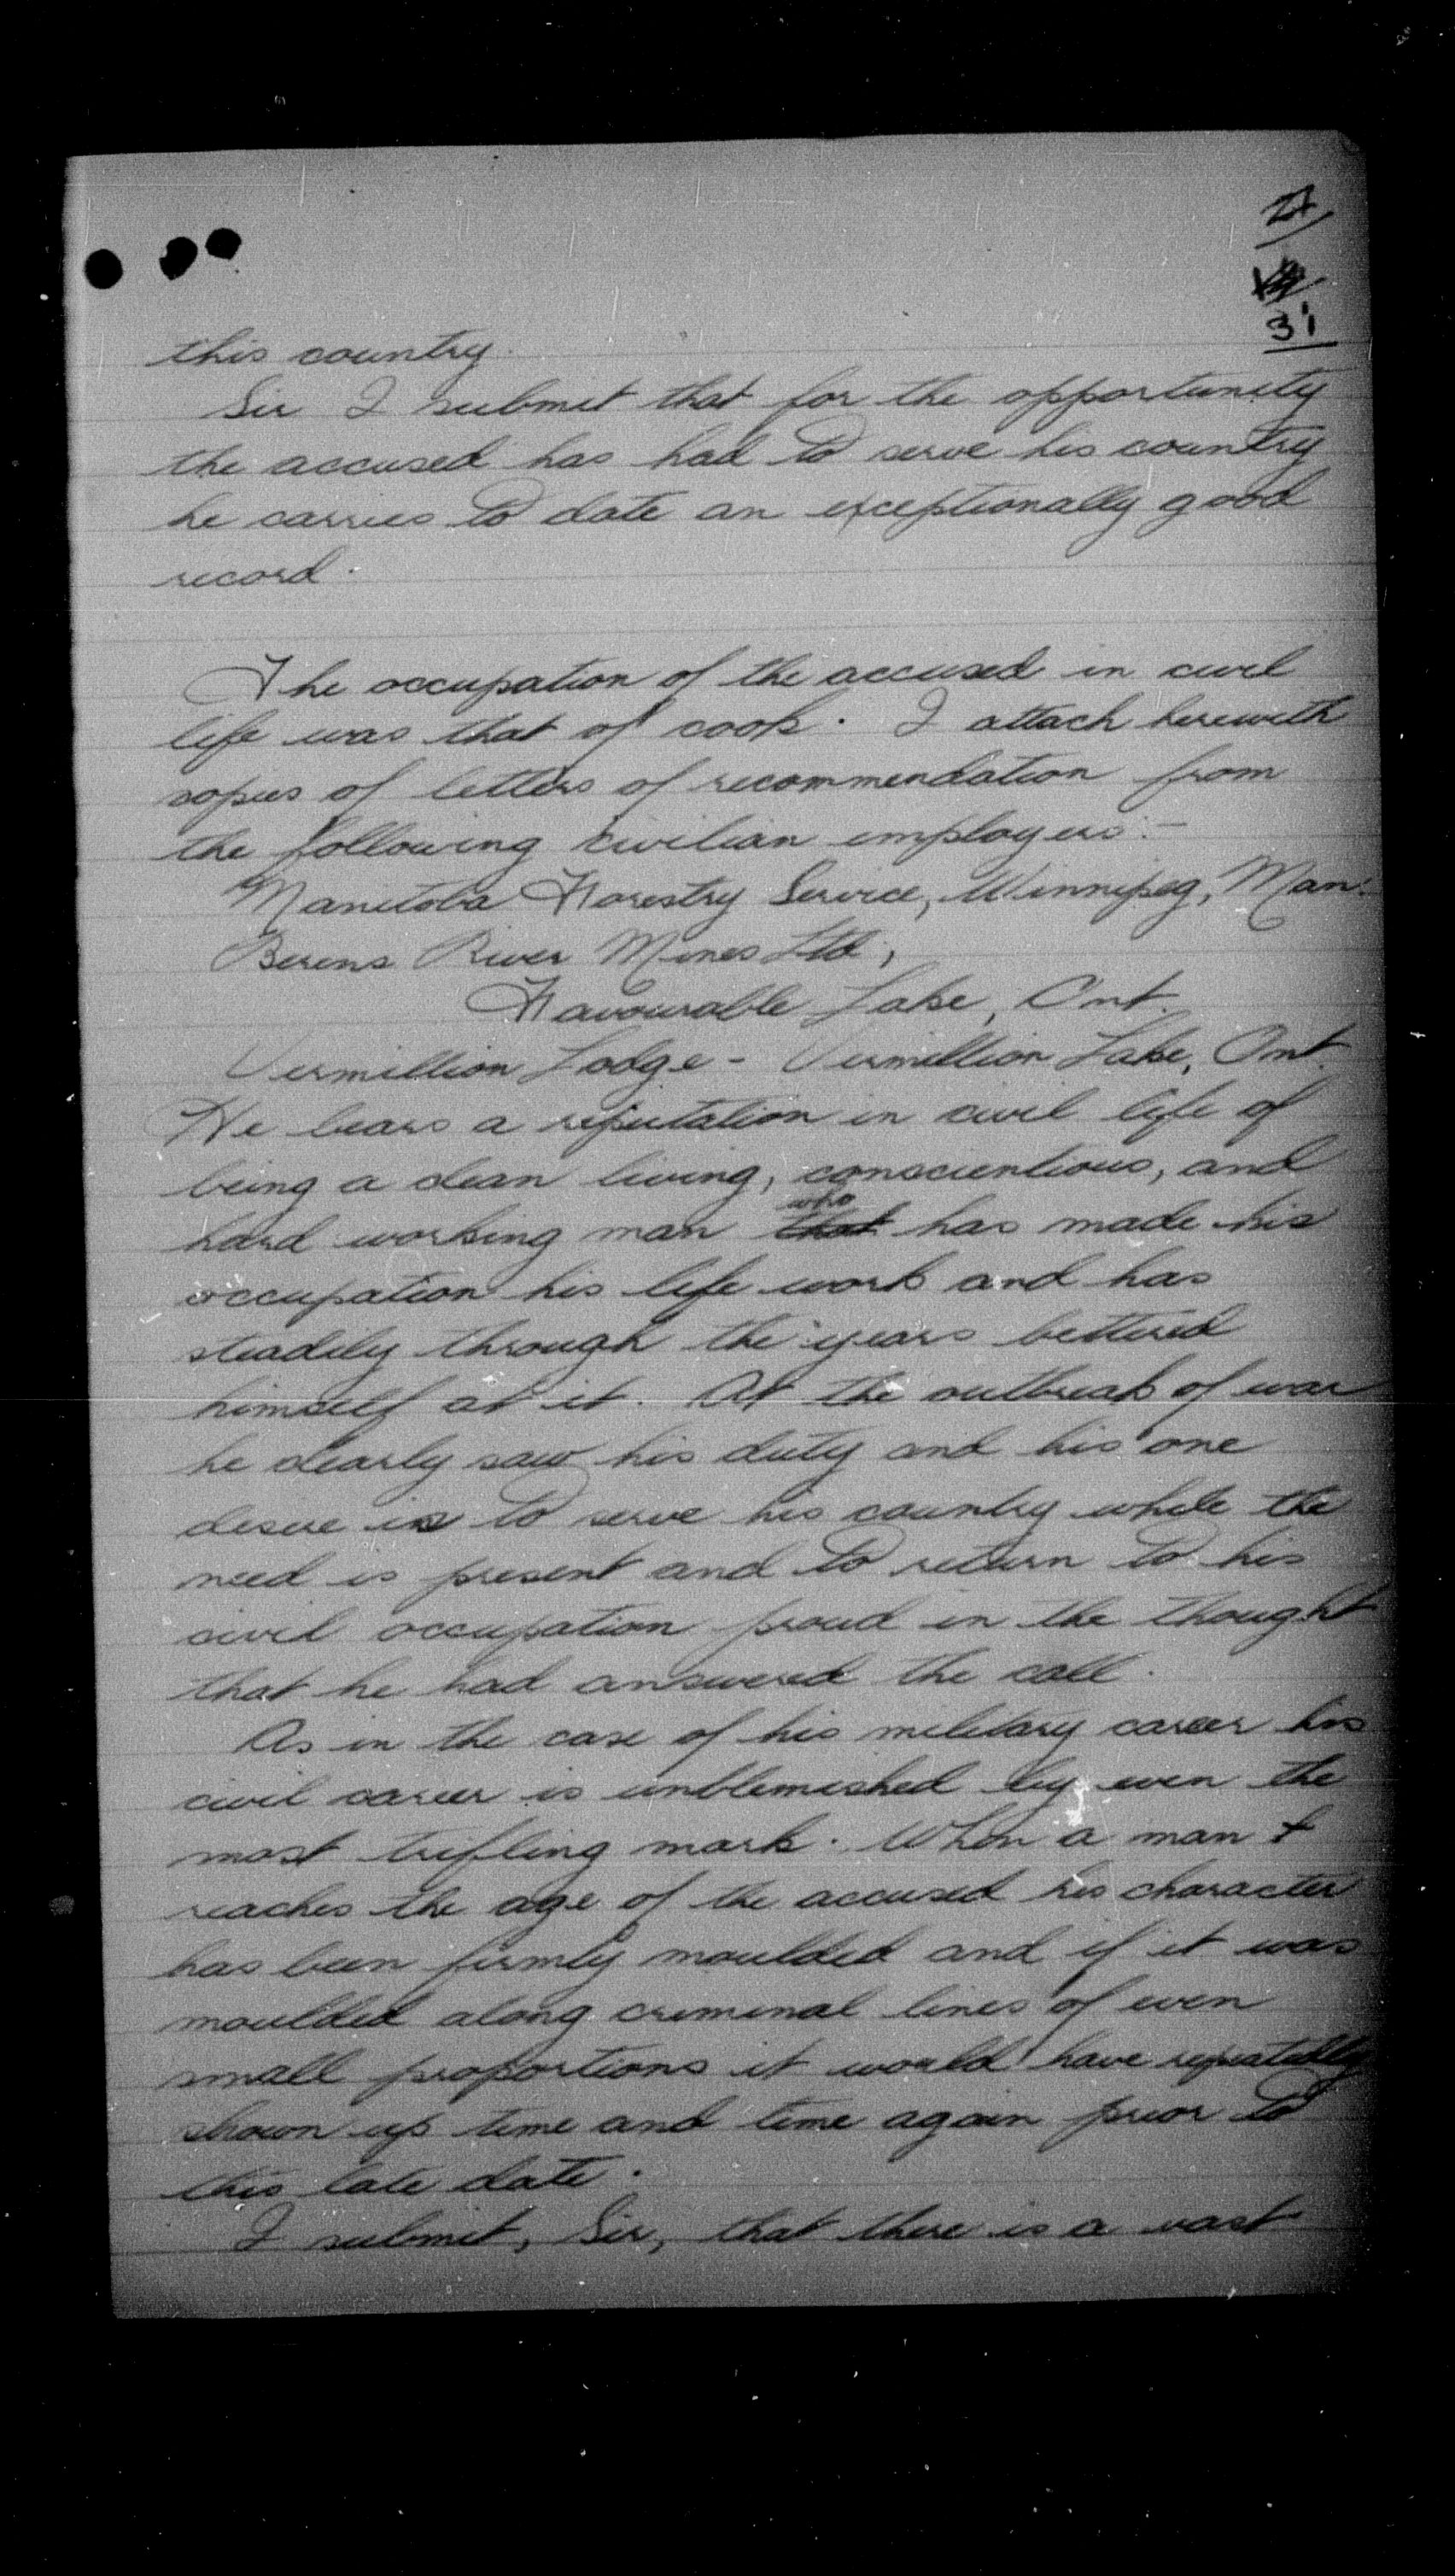 27
31
this country.
Sir I submit that for the opportunity
the accused has had to serve his country
he carries to date an exceptionally good
record.
The occupation of the accused in civil
life was that of cook. I attach herewith
copies of letters of recommendation from
the following civilian employers:-
Manitoba Forestry Service, Winnipeg, Man.
Berens River Mines Ltd,
Favourable Lake, Ont.
Vermillion Lodge - Vermillion Lake, Ont.
He bears a reputation in civil life of
being a clean living, conscientious, and
who
hard working man that has made his
occupation his life work and has
steadily through the years bettered
himself at it. At the outbreak of war
he clearly saw his duty and his one
desire is to serve his country while the
need is present and to return to his
civil occupation proud in the thought
that he had answered the call.
As in the case of his military career his
civil career is unblemished by even the
most trifling mark. When a man
reaches the age of the accused his character
has been firmly moulded and if it was
moulded along criminal lines of even
small proportions it would have repeatedly
shown up time and time again prior to
this late date.
I submit, Sir, that there is a vast